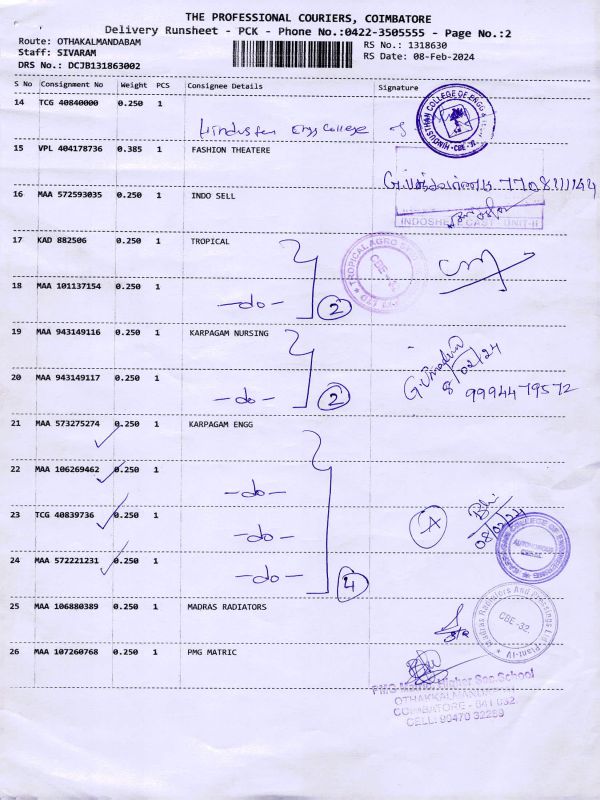 THE PROFESSIONAL COURIERS, COIMBATORE
Delivery Runsheet - PCK - Phone No.:0422-3505555 - Page No.:2
Route: OTHAKALMANDABAM
Staff: SIVARAM
DRS No.: DCJB131863002
RS No.: 1318630
RS Date: 08-Feb-2024
S No Consignment No Weight PCS Consignee Details Signature
14 TCG 40840000 0.250 1
Hindusthan Engg College
15 VPL 404178736 0.385 1 FASHION THEATERE
7708111144
16 MAA 572593035 0.250 1 INDO SELL
17 KAD 882506 0.250 1 TROPICAL
18 MAA 101137154 0.250 1
-do- 2
19 MAA 943149116 0.250 1 KARPAGAM NURSING
8/02/24
9994479572
20 MAA 943149117 0.250 1
-do- 2
21 MAA 573275274 0.250 1 KARPAGAM ENGG
22 MAA 106269462 0.250 1
-do-
23 TCG 40839736 0.250 1
-do-
08/02/24
24 MAA 572221231 0.250 1
-do- 4
25 MAA 106880389 0.250 1 MADRAS RADIATORS
Madras Radiators And Pressings Ltd Plant-IV
CBE-32.
26 MAA 107260768 0.250 1 PMG MATRIC
OTHAKKALMANDAPAM
COIMBATORE - 641 032.